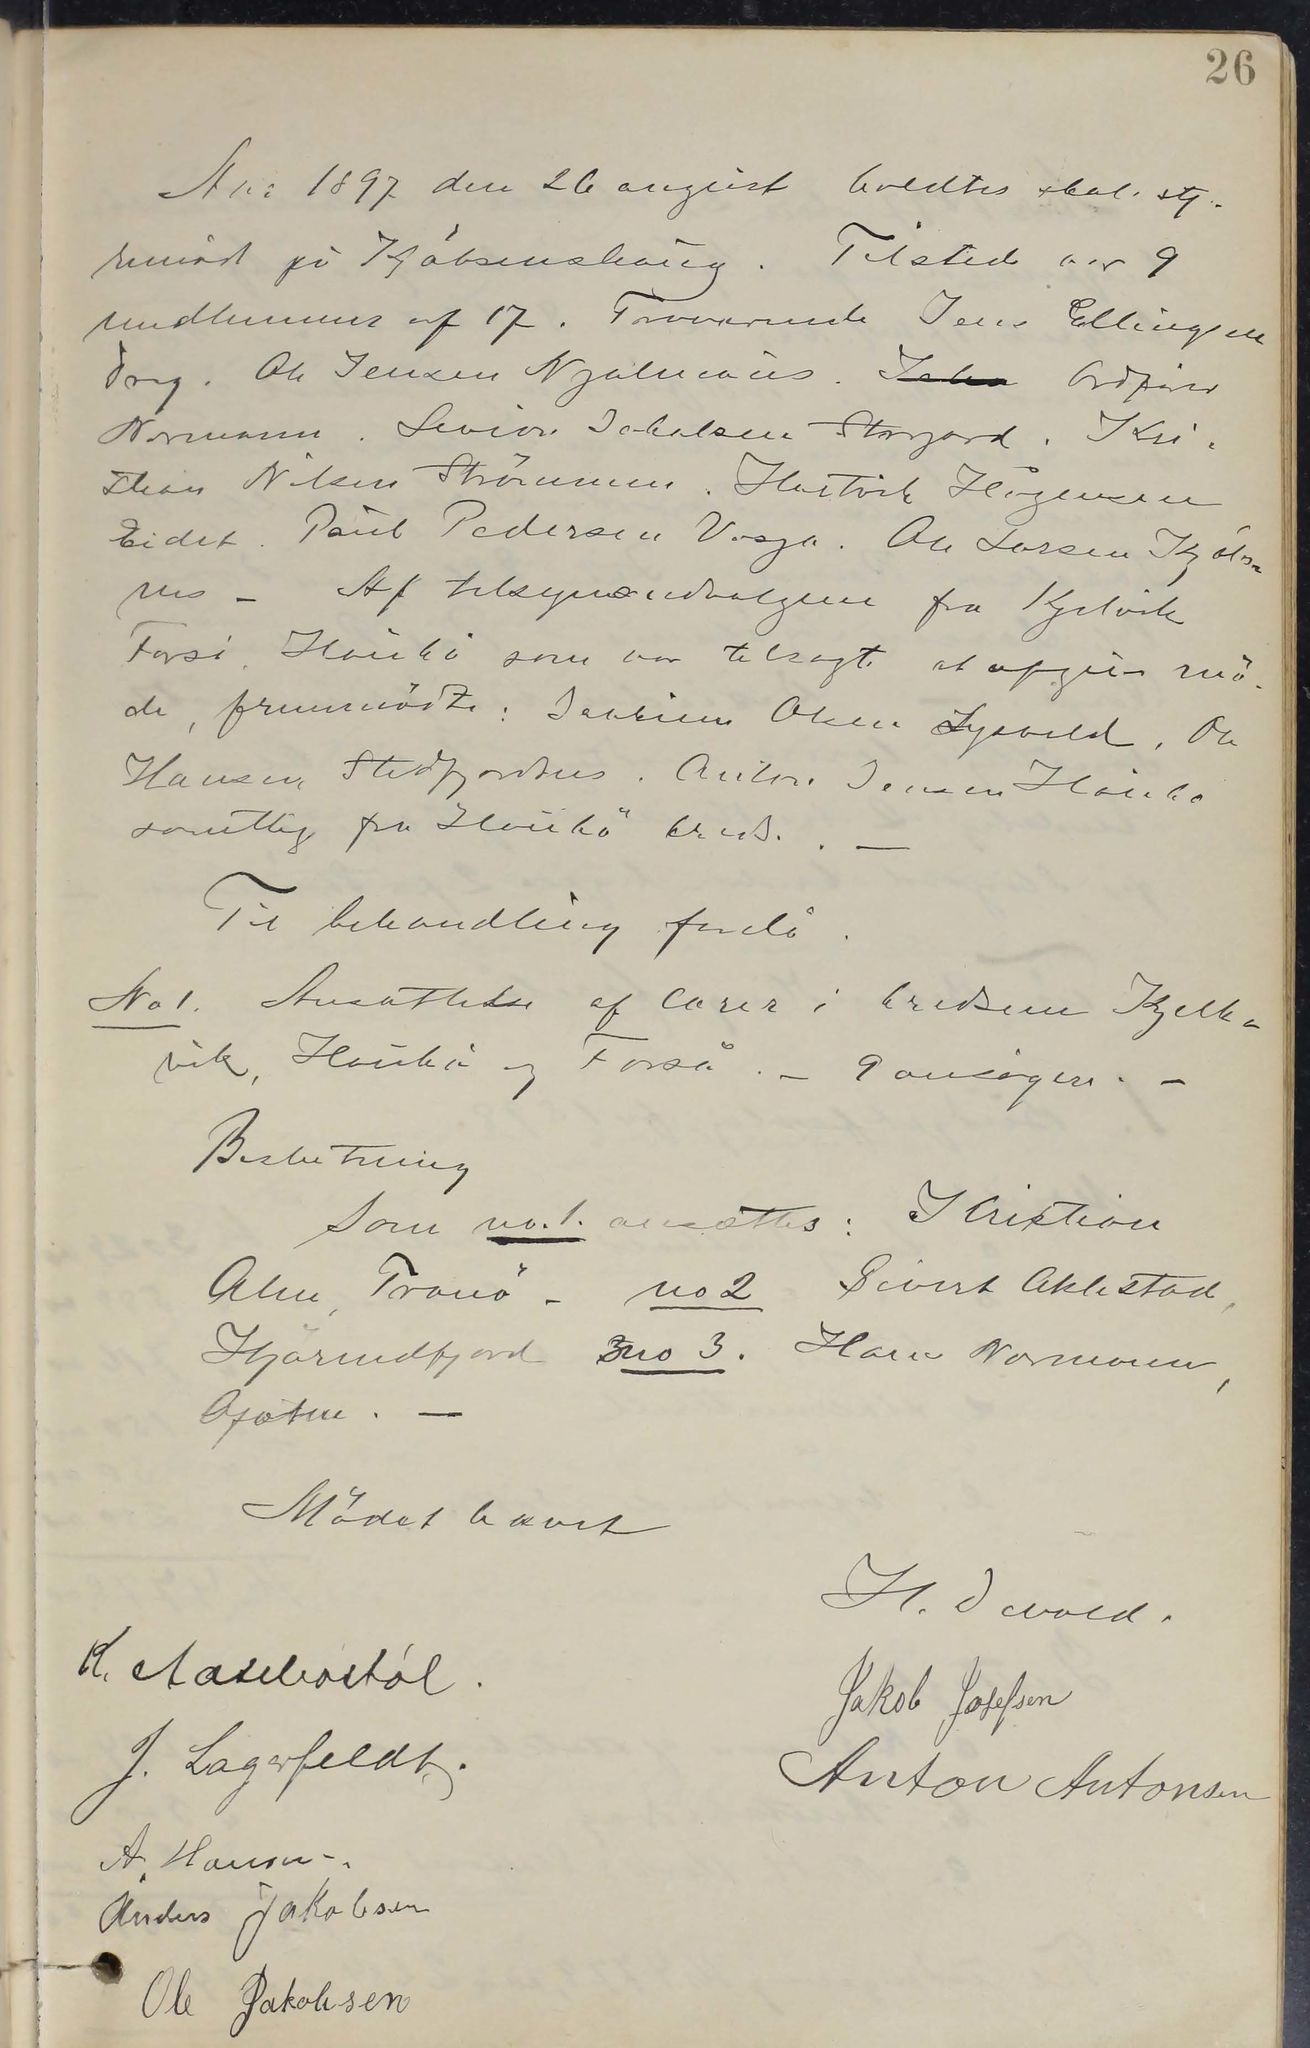 26
Aar 1897 den 26 august holdtes skolesty-
remöde på Kjöbsneshaug. Tilstede var 9
medlemmer af 17. Fraværende Jens Ellingsen
Drag. Ole Jensen Njalmaus. Ordförer
Normann. Sevior Jakobsen Storjord. Kri-
stian Nilsen Strömmen. Hartvik Hågensen
Eidet. Paul Pedersen Vasja. Ole Larsen Kjöbs-
nes - Af tilsynsudvalgene fra Kjelvik
Forså, Haukö som var tilsagt at afgive mö-
de, fremmödte: Joakim Olsen Lysvold, Ole
Hansen Stedfjordnes. Anton Jensen Haukö
samtlig fra Haukö kreds. . -
Til behandling forelå.
No 1. Ansættelse af lærer i kredsene Kjelk-
vik, Haukö og Forså. - 9 ansögere. -
Beslutning
Som no. 1. ansættes: Kristian
Alm, Tranö - no 2 Sivert Aklestad,
Hjörundfjord no 3. Hans Normann,
Ofoten. -
Mödet hævet
H. Davold.
K. Aaseböstöl.
Jakob Josefsen
J. Lagerfeldt.
Anton Antonsen
A. Hansen-.
Anders Jakobsen
Ole Jakobsen